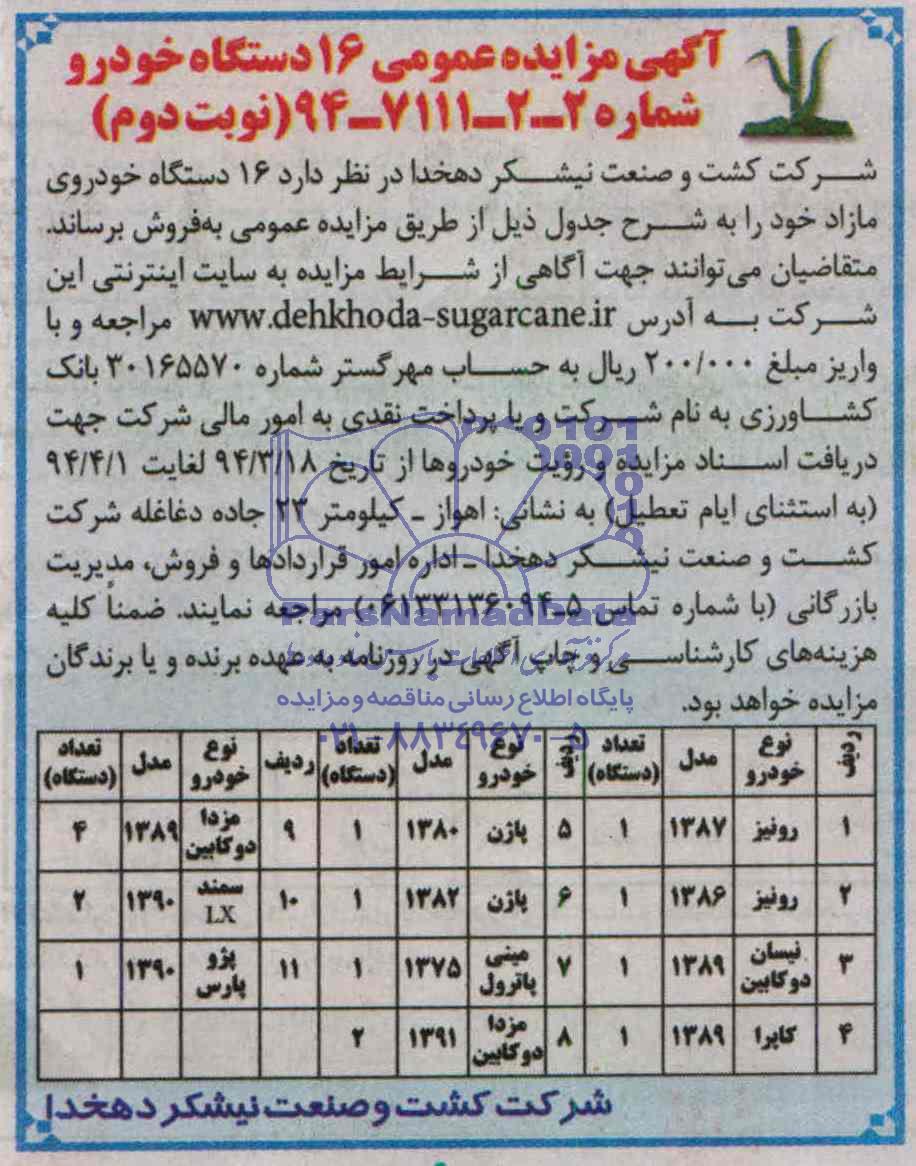 آگهی مزایده عمومی ۱۶ دستگاه خودرو
شماره ۲ـ۲ـ۷۱۱۱ـ۹۴ (نوبت دوم)
شرکت کشت و صنعت نیشکر دهخدا در نظر دارد ۱۶ دستگاه خودروی
مازاد خود را به شرح جدول ذیل از طریق مزایده عمومی به‌فروش برساند.
متقاضیان می‌توانند جهت آگاهی از شرایط مزایده به سایت اینترنتی این
شرکت به آدرس www.dehkhoda-sugarcane.ir مراجعه و با
واریز مبلغ ۲۰۰/۰۰۰ ریال به حساب مهرگستر شماره ۳۰۱۶۵۵۷۰ بانک
کشاورزی به نام شرکت و یا پرداخت نقدی به امور مالی شرکت جهت
دریافت اسناد مزایده و رؤیت خودروها از تاریخ ۹۴/۳/۱۸ لغایت ۹۴/۴/۱
(به استثنای ایام تعطیل) به نشانی: اهواز ـ کیلومتر ۲۳ جاده دغاغله شرکت
کشت و صنعت نیشکر دهخدا ـ اداره امور قراردادها و فروش، مدیریت
بازرگانی (با شماره تماس ۵ـ۰۶۱۳۳۱۳۶۰۹۴) مراجعه نمایند. ضمناً کلیه
هزینه‌های کارشناسی و چاپ آگهی در روزنامه به عهده برنده و یا برندگان
مزایده خواهد بود.
ParsNamadData
پایگاه اطلاع رسانی مناقصه و مزایده
۰۲۱-۸۸۳۴۹۶۷۰-۵
ردیف نوع خودرو مدل تعداد (دستگاه) ردیف نوع خودرو مدل تعداد (دستگاه) ردیف نوع خودرو مدل تعداد (دستگاه)
۱ رونیز ۱۳۸۷ ۱ ۵ پاژن ۱۳۸۰ ۱ ۹ مزدا دوکابین ۱۳۸۹ ۴
۲ رونیز ۱۳۸۶ ۱ ۶ پاژن ۱۳۸۲ ۱ ۱۰ سمند LX ۱۳۹۰ ۲
۳ نیسان دوکابین ۱۳۸۹ ۱ ۷ مینی پاترول ۱۳۷۵ ۱ ۱۱ پژو پارس ۱۳۹۰ ۱
۴ کاپرا ۱۳۸۹ ۱ ۸ مزدا دوکابین ۱۳۹۱ ۲
شرکت کشت و صنعت نیشکر دهخدا